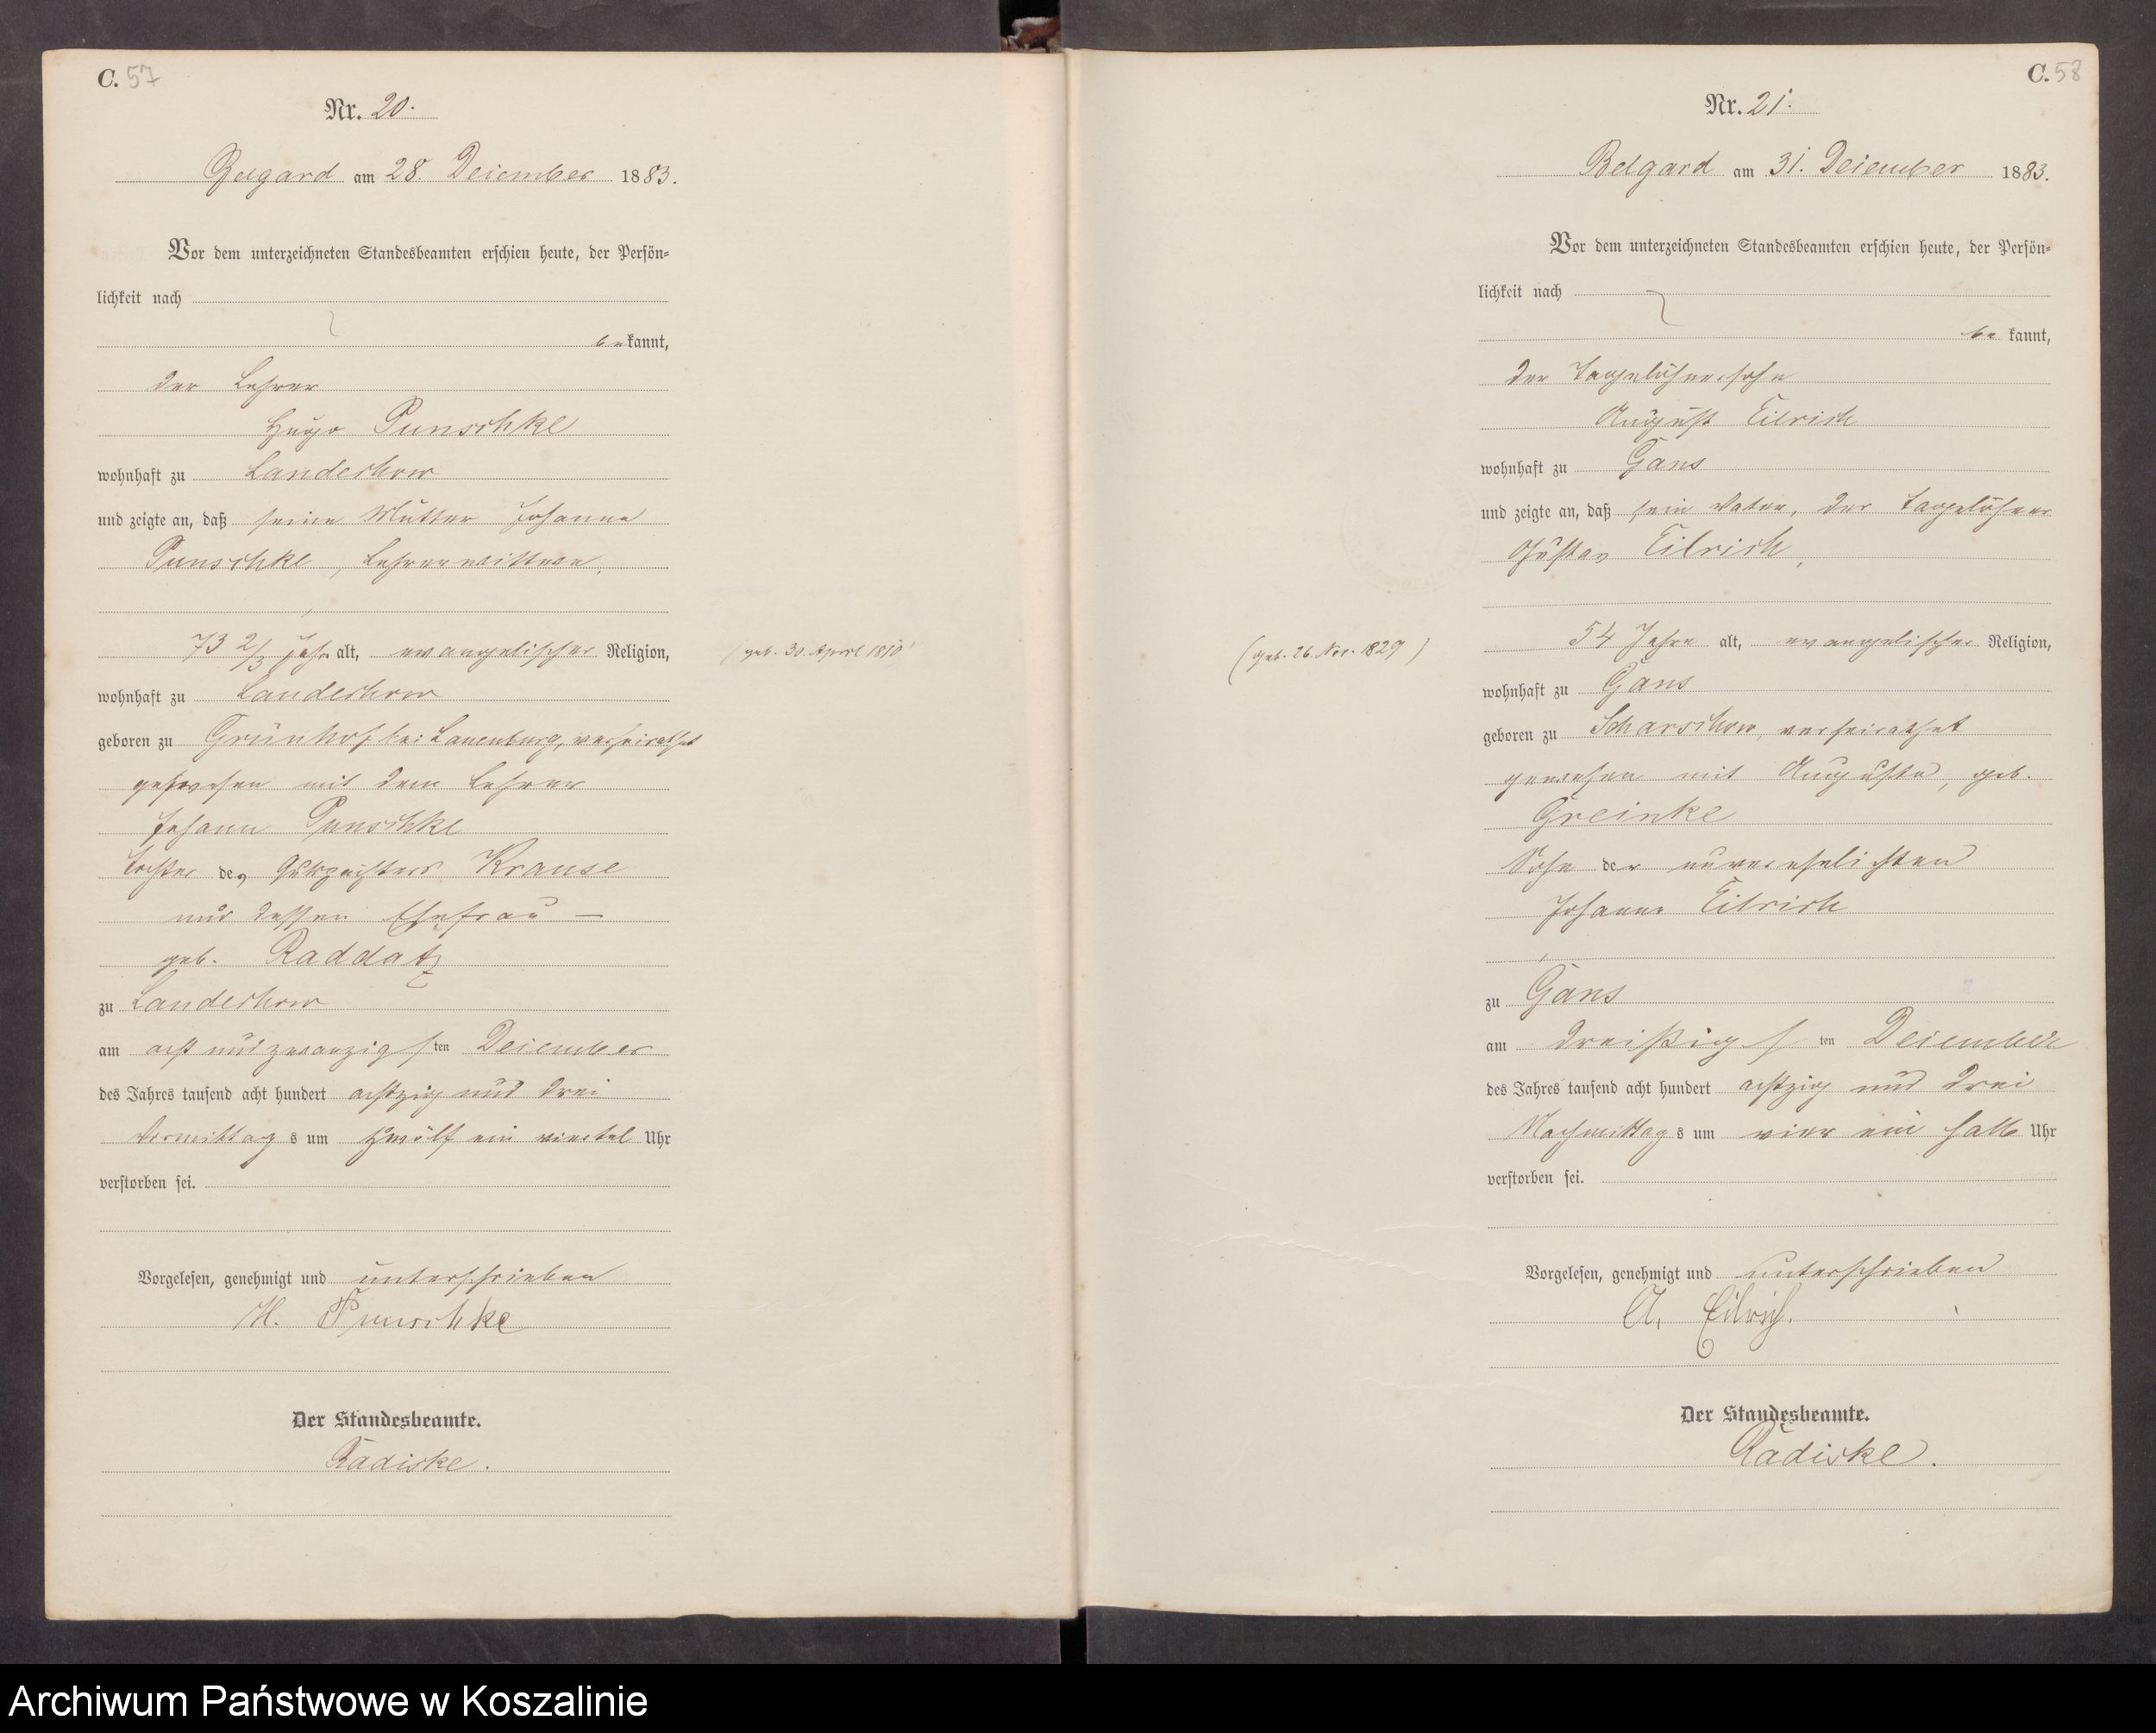 C. 57
Nr. 20.
Belgard am 28. Dezember 1883.
Vor dem unterzeichneten Standesbeamten erschien heute, der Persön-
lichkeit nach
bekannt,
der Lehrer
Hugo Punschke
wohnhaft zu Landechow
und zeigte an, daß seine Mutter Johanna
Punschke, Lehrerwittwe,
73 2/3 Jahr alt, evangelischer Religion,
(geb. 30. April 1810)
wohnhaft zu Landechow
geboren zu Grünhof bei Lauenburg, verheirathet
gewesen mit dem Lehrer
Johann Punschke
Tochter des Gutspächters Krause
und dessen Ehefrau —
geb. Raddatz
zu Landechow
am acht und zwanzigsten Dezember
des Jahres tausend acht hundert achtzig und drei
Vormittags um zwölf ein viertel Uhr
verstorben sei.
Vorgelesen, genehmigt und unterschrieben
H. Punschke
Der Standesbeamte.
Radiske.
C. 58
Nr. 21.
Belgard am 31. Dezember 1883.
Vor dem unterzeichneten Standesbeamten erschien heute, der Persön-
lichkeit nach
be kannt,
der Tagelöhnersohn
August Eilrich
wohnhaft zu Gans
und zeigte an, daß sein Vater, der Tagelöhner
Gustav Eilrich,
(geb. 26. Nov. 1829)
54 Jahre alt, evangelischer Religion,
wohnhaft zu Gans
geboren zu Scharschow, verheirathet
gewesen mit Auguste, geb.
Greinke
Sohn der unverehelichten
Johanne Eilrich
zu Gans
am dreißigsten Dezember
des Jahres tausend acht hundert achtzig und drei
Nachmittags um vier ein halb Uhr
verstorben sei.
Vorgelesen, genehmigt und unterschrieben
A. Eilrich.
Der Standesbeamte.
Radiske.
Archiwum Państwowe w Koszalinie